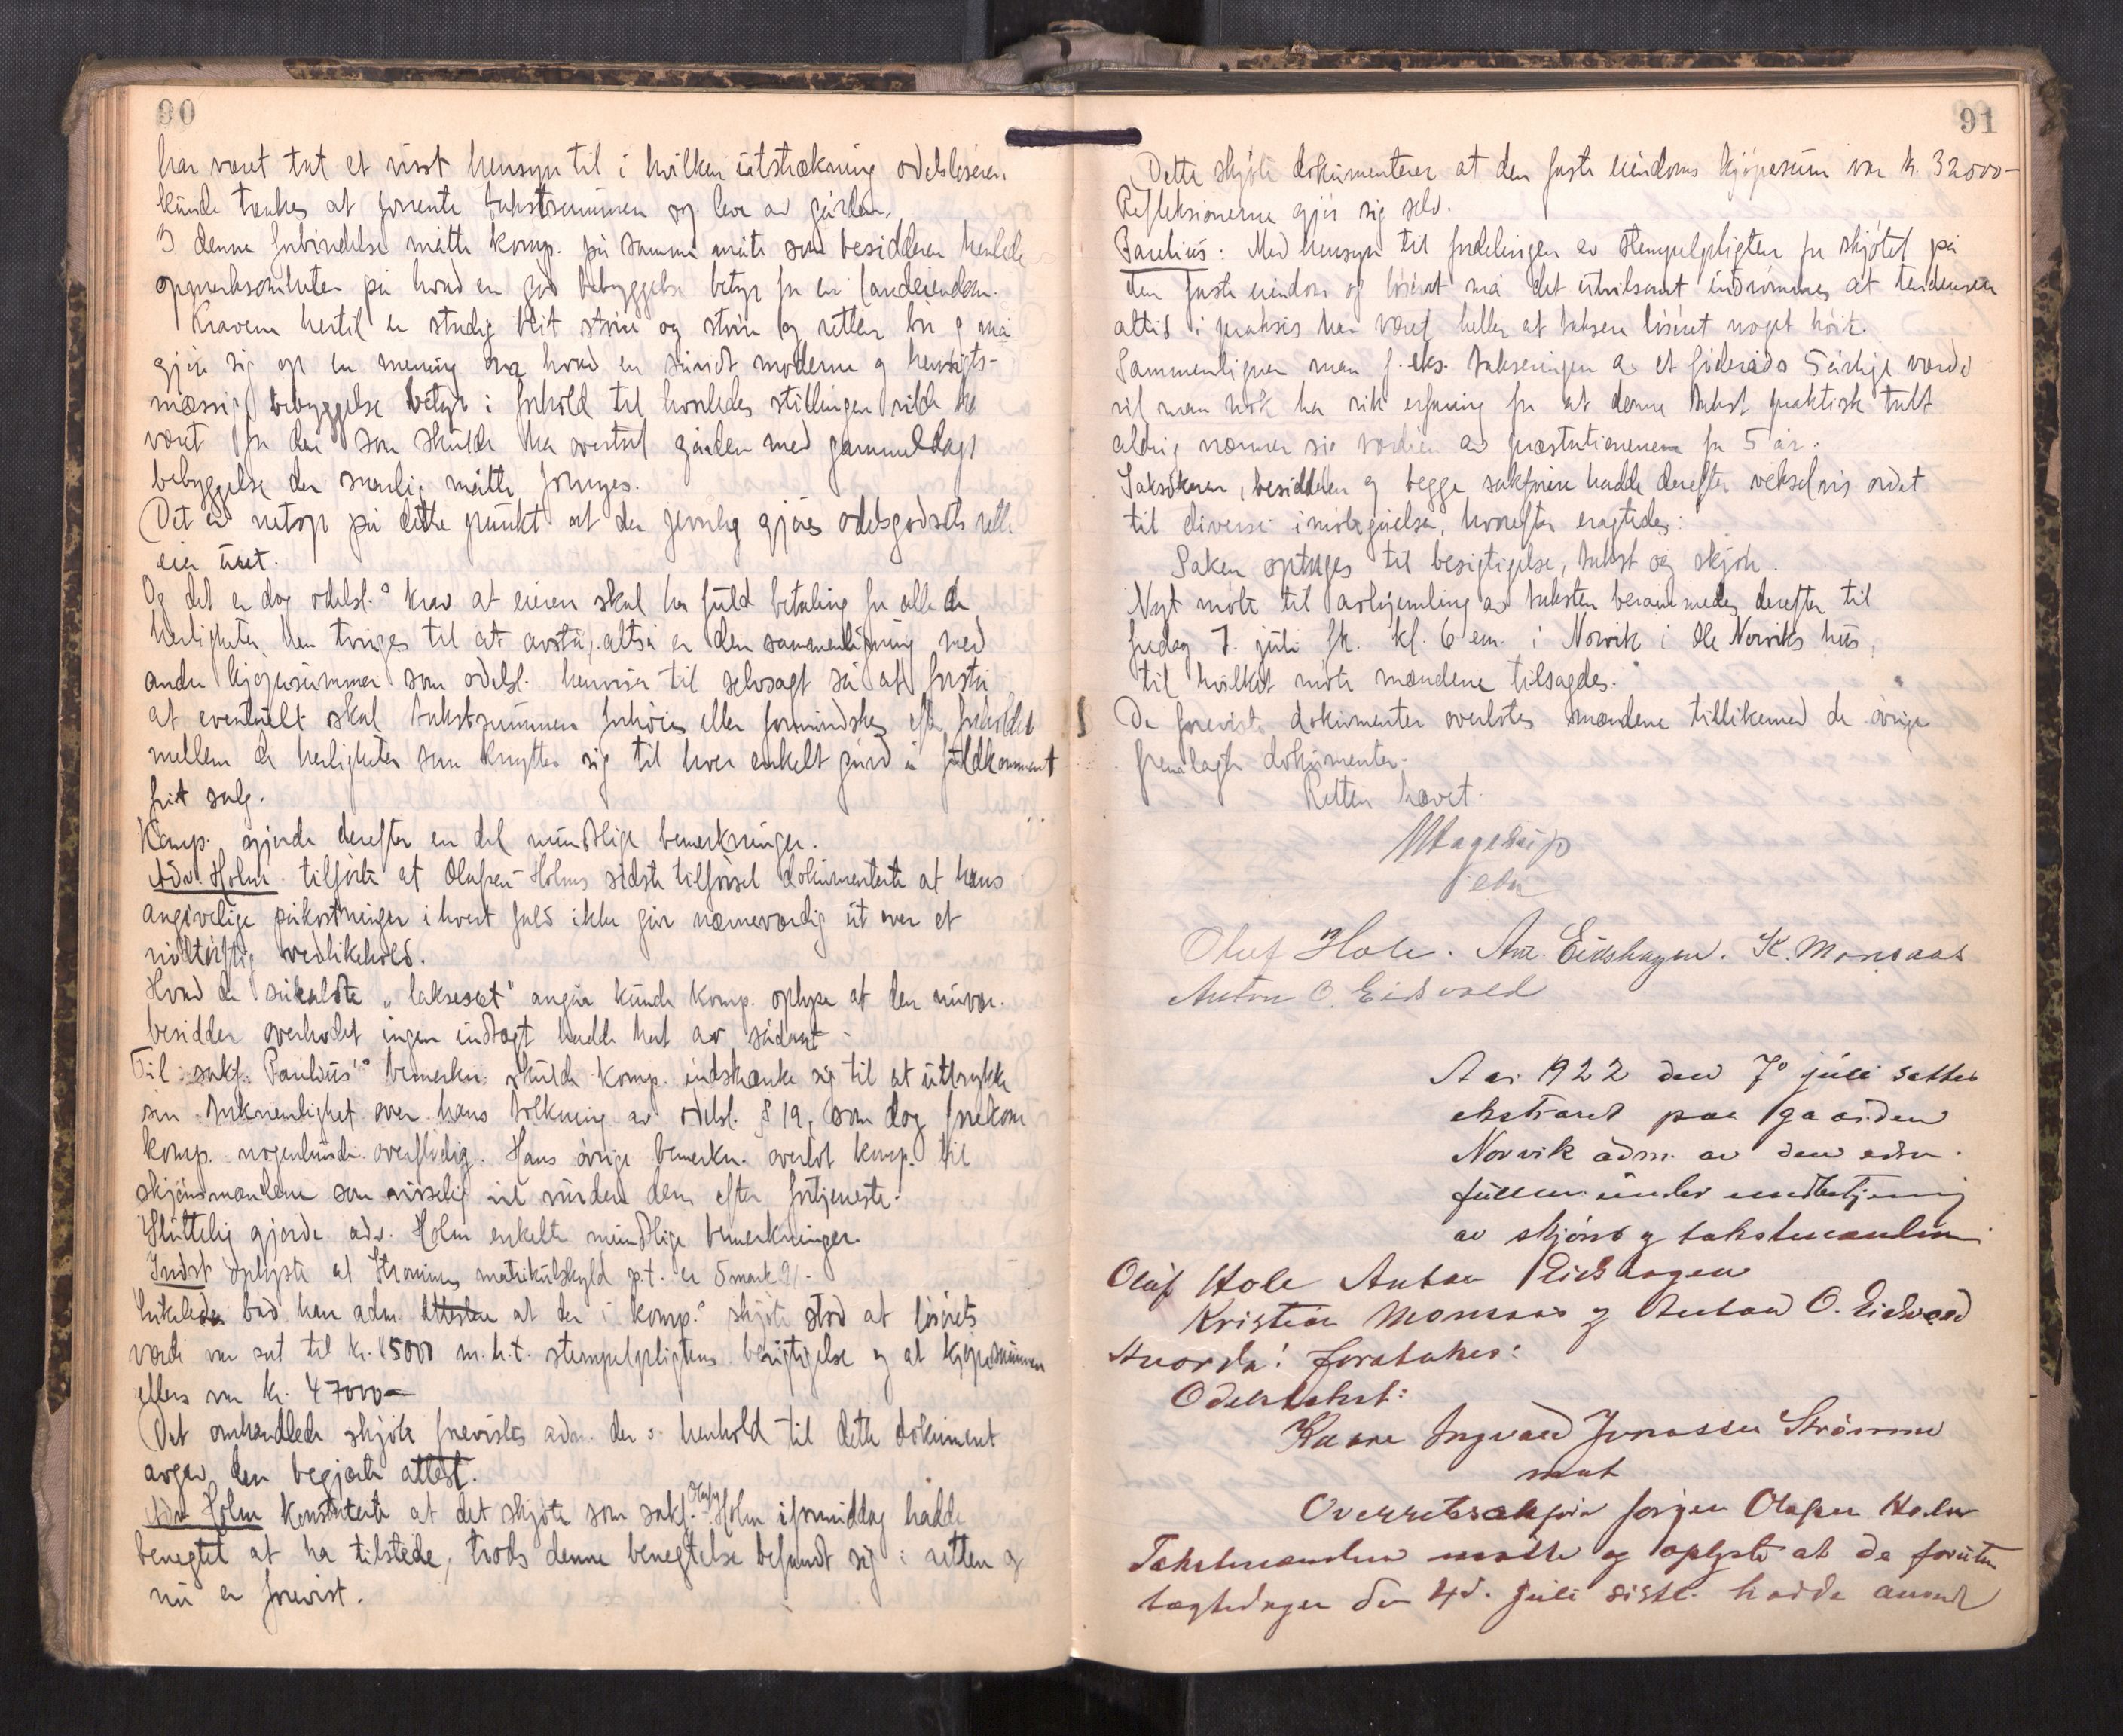 90
har været tat et visst hensyn til i hvilken utstrækning odelsløseren
kunde tænkes at forrente takstsummen og leve av gården.
I denne forbindelse måtte komp. på samme måte som besidderen henlede
opmerksomheten på hvad en god bebyggelse betyr for en landeiendom.
Kravene hertil er stadig blit større og større og retten bør og må
gjøre sig op en mening om hvad en sundt moderne og hensigts-
mæssig bebyggelse betyr i forhold til hvorledes stillingen vilde ha
været for den som skulde ha overtat gården med gammeldags
bebyggelse der snarlig måtte fornyes.
Det er netop på dette punkt at der jevnlig gjøres odelsgodsets rette
eier uret.
Og det er dog odelsl.s krav at eieren skal ha fuld betaling for alle de
herligheter han tvinges til at avstå, altså er den sammenligning med
andre kjøpesummer som odelsl. henviser til selvsagt så at forstå
at eventuelt skal takstsummen forhøies eller formindskes efter forholdet
mellem de herligheter som knytter sig til hver enkelt gård i fuldkomment
frit salg.
Komp. gjorde derefter en del mundtlige bemerkninger.
Adv. Holm tilførte at Olafsen-Holms sidste tilførsel dokumenterte at hans
angivelige påkostninger i hvert fald ikke går nævneværdig ut over et
nødtørftig vedlikehold.
Hvad de såkaldte "laksesæt" angår kunde komp. oplyse at den nuvær.
besidder overhodet ingen indtægt hadde hat av sådant -
Til sakf. Paulius's bemerkn. skulde komp. indskrænke sig til at uttrykke
sin taknemlighet over hans tolkning av odelsl. § 19, som dog forekom
komp. nogenlunde overflødig. Hans øvrige bemerkn. overlot komp. til
skjønsmændene som visselig vil vurdere dem efter fortjeneste.
Sluttelig gjorde adv. Holm enkelte mundtlige bemerkninger.
Indst oplyste at Strømmes matrikulskyld p.t. er 5 mark 91.
Likeledes bad han adm. attestere at der i komp.s skjøte stod at løsørets
værdi var sat til kr. 15000 m.h.t. stempelpligtens berigtigelse og at kjøpesummen
ellers var kr. 47000-
Det omhandlede skjøte forevistes adm. der i henhold til dette dokument
avgav den begjærte attest.
Adv Holm konstaterte at det skjøte som sakf. Olafsen Holm iformiddag hadde
benegtet at ha tilstede, trods denne benegtelse befandt sig i retten og
nu er forevist.
91
Dette skjøte dokumenterer at den faste eiendoms kjøpesum var kr. 32000-
Refleksionerne gjør sig selv.
Paulius: Med hensyn til fordelingen av stempelpligten for skjøtet på
den faste eiendom og løsøret må det utvilsomt indrømmes at tendensen
altid i praksis har været heller at taksere løsøret noget høit.
Sammenligner man f. eks. takseringen av et føderåds 5årlige værdi
vil man nok ha rik erfaring for at denne takst praktisk talt
aldrig nærmer sig værdien av præstationene for 5 år.
Saksøkeren, besidderen og begge sakførere hadde derefter vekselvis ordet
til diverse imøtegåelser, hvorefter eragtedes:
Saken optages til besigtigelse, takst og skjøn.
Nyt møte til avhjemling av taksten berammedes derefter til
fredag 7. juli fk. kl. 6 em. i Norvik i Ole Norviks hus,
til hvilket møte mændene tilsagdes.
De foreviste dokumenter overlotes mændene tillikemed de øvrige
fremlagte dokumenter.
Retten hævet.
MHagerup
edv
Oluf Hole. Ant. Eidshagen. K. Monsaas
Anton O. Eidsvold
Aar 1922 den 7° juli sattes
ekstraret paa gaarden
Norvik adm. av den edsv.
fuldm. under meddomsbetjening
av skjøns og takstmændene
Oluf Hole Anton Eidshagen
Kristian Monsaas og Anton O. Eidsvold
Hvorda: foretokes:
Odelstakst:
Kaare Ingvald Jonassen Strømme
mot
Overretssakfører Jørgen Olafsen Holm
Takstmændene møtte og oplyste at de foruten
tægtedagen den 4d. juli sistl. hadde anvendt